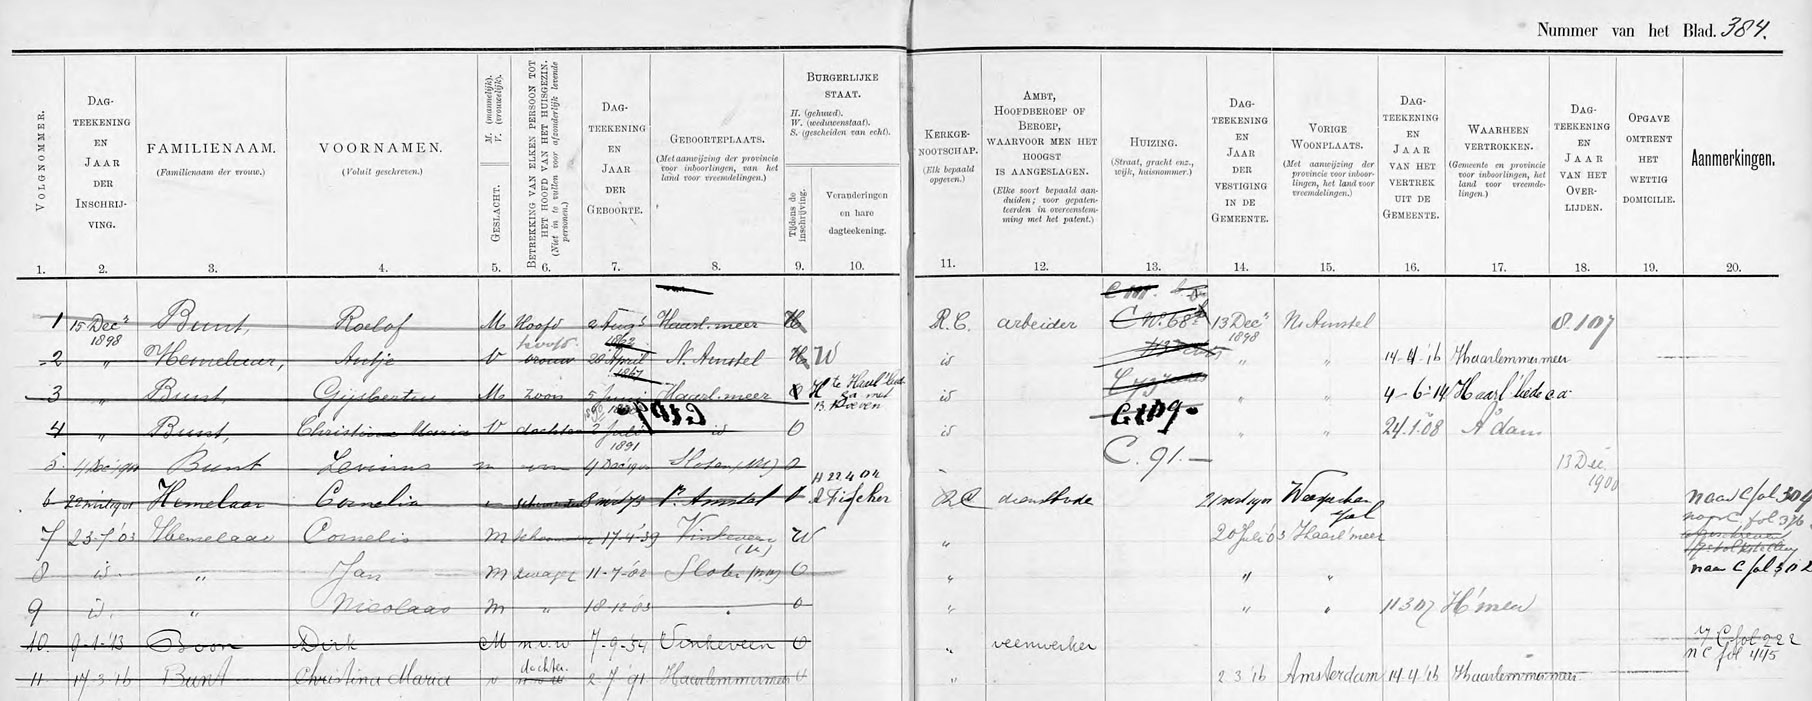 Nummer van het Blad. 384.
VOLGNOMMER.
DAG-
TEEKENING
EN
JAAR
DER
INSCHRIJ-
VING.
FAMILIENAAM.
(Familienaam der vrouw.)
VOORNAMEN.
(Voluit geschreven.)
M. (mannelijk).
V. (vrouwelijk).
GESLACHT.
BETREKKING VAN ELKEN PERSOON TOT
HET HOOFD VAN HET HUISGEZIN.
(Niet in te vullen voor afzonderlijk levende
personen.)
DAG-
TEEKENING
EN
JAAR
DER
GEBOORTE.
GEBOORTEPLAATS.
(Met aanwijzing der provincie
voor inboorlingen, van het
land voor vreemdelingen.)
BURGERLIJKE
STAAT.
H. (gehuwd).
W. (weduwenstaat).
S. (gescheiden van echt).
Tijdens de
inschrijving.
Veranderingen
en hare
dagteekening.
KERKGE-
NOOTSCHAP.
(Elk bepaald
opgeven.)
AMBT,
HOOFDBEROEP OF
BEROEP,
WAARVOOR MEN HET
HOOGST
IS AANGESLAGEN.
(Elke soort bepaald aan-
duiden; voor gepaten-
teerden in overeenstem-
ming met het patent.)
HUIZING.
(Straat, gracht enz.,
wijk, huisnommer.)
DAG-
TEEKENING
EN
JAAR
DER
VESTIGING
IN DE
GEMEENTE.
VORIGE
WOONPLAATS.
(Met aanwijzing der
provincie voor inboor-
lingen, het land voor
vreemdelingen.)
DAG-
TEEKENING
EN
JAAR
VAN HET
VERTREK
UIT DE
GEMEENTE.
WAARHEEN
VERTROKKEN.
(Gemeente en provincie
voor inboorlingen, het
land voor vreemde-
lingen.)
DAG-
TEEKENING
EN
JAAR
VAN HET
OVER-
LIJDEN.
OPGAVE
OMTRENT
HET
WETTIG
DOMICILIE.
Aanmerkingen.
1. 2. 3. 4. 5. 6. 7. 8. 9. 10. 11. 12. 13. 14. 15. 16. 17. 18. 19. 20.
1 15 Decr 1898 Bunt, Roelof M Hoofd 2 Augs 1862 Haarl.meer H R.C. arbeider C No 68 13 Decr 1898 Nr Amstel 8.1 07
2 " Hemelaar, Antje V vrouw hoofd 28 April 1867 N. Amstel H W id " " 14-4-'16 Haarlemmermeer
3 " Bunt, Gijsbertus M zoon 5 Juni Haarl.meer H te Haarl'lied id " " 4-6-14 Haarl'liede ca
4 " Bunt, Christina Maria V dochter 2 Juli 1891 id O id " " 24.1.08 A'dam
C. 91.
5 Bunt Levinus m zoon Sloten (NH) O 13 Dec 1900
6 Hemelaar Cornelia N. Amstel H 22 4 04 Fischer RC dienstbode Weesperkarspel naar C fol 304
7 23-7-'03 Hemelaar Cornelis M schoonv 17-4-'39 Vinkeveen (U) W " 20 Juli 03 Haarl'meer
8 id " Jan M zwager 11-7-'82 Sloten (NH) O " " " naar C fol 302
9 id. " Nicolaas M " 18-12-'83 O " " " 11 3 07 H'meer
10 9-1-'13 Boon Dirk M n.v.w 7-9-'54 Vinkeveen O " veenwerker C. fol 222
n C fol 445
11 17 3 '16 Bunt Christina Maria v dochter 2 7 '91 Haarlemmermeer O " 2 3 '16 Amsterdam 14 4 '16 Haarlemmermeer